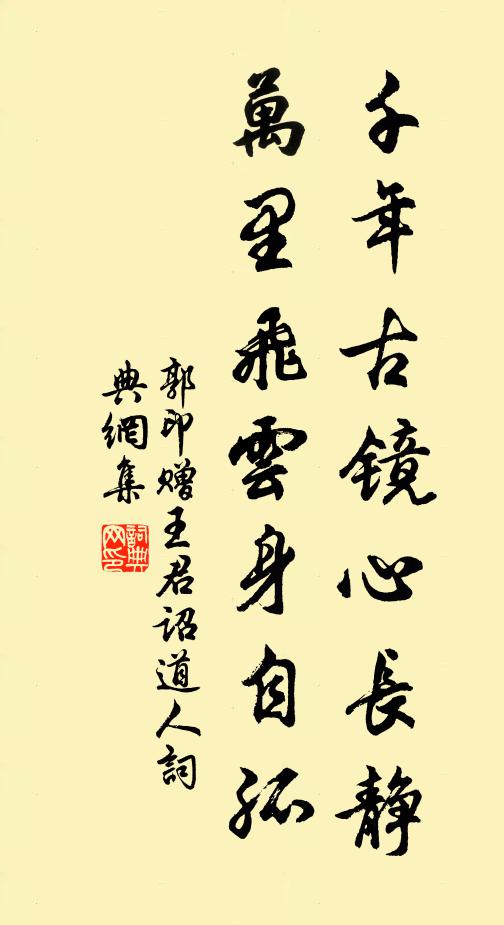 千年古镜心長静
萬里飛雲身自孤
郭印赠王君詔道人詞
典網集
詞典
网印